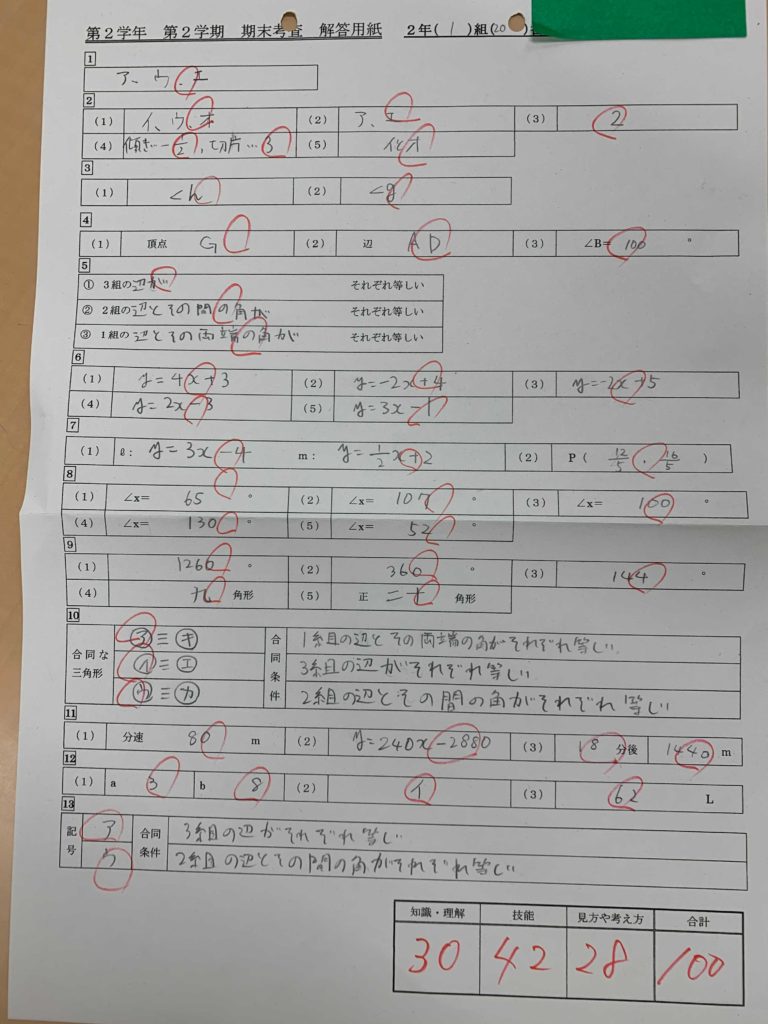 第2学年 第2学期 期末考査 解答用紙 2年( 1 )組(20
1
ア、ウ、エ
2
(1) イ、ウ、オ (2) ア、エ (3) 2
(4) 傾き…-1/2, 切片…3 (5) イとオ
3
(1) <h (2) <g
4
(1) 頂点 G (2) 辺 AD (3) ∠B= 100 °
5
① 3組の辺が それぞれ等しい
② 2組の辺とその間の角が それぞれ等しい
③ 1組の辺とその両端の角が それぞれ等しい
6
(1) y=4x+3 (2) y=-2x+4 (3) y=-2x+5
(4) y=2x-3 (5) y=3x-1
7
(1) ℓ: y=3x-4 m: y=1/2x+2 (2) P ( 12/5 , 16/5 )
8
(1) ∠x= 65 ° (2) ∠x= 107 ° (3) ∠x= 100 °
(4) ∠x= 130 ° (5) ∠x= 52 °
9
(1) 1260 ° (2) 360 ° (3) 144 °
(4) 九 角形 (5) 正 二十 角形
10
合同な三角形 ㋐≡㋖ 合同条件 1組の辺とその両端の角がそれぞれ等しい
㋑≡㋓ 3組の辺がそれぞれ等しい
㋒≡㋕ 2組の辺とその間の角がそれぞれ等しい
11
(1) 分速 80 m (2) y=240x-2880 (3) 18 分後 1440 m
12
(1) a 3 b 8 (2) イ (3) 62 L
13
記号 ア 合同条件 3組の辺がそれぞれ等しい
ウ 2組の辺とその間の角がそれぞれ等しい
知識・理解 技能 見方や考え方 合計
30 42 28 100